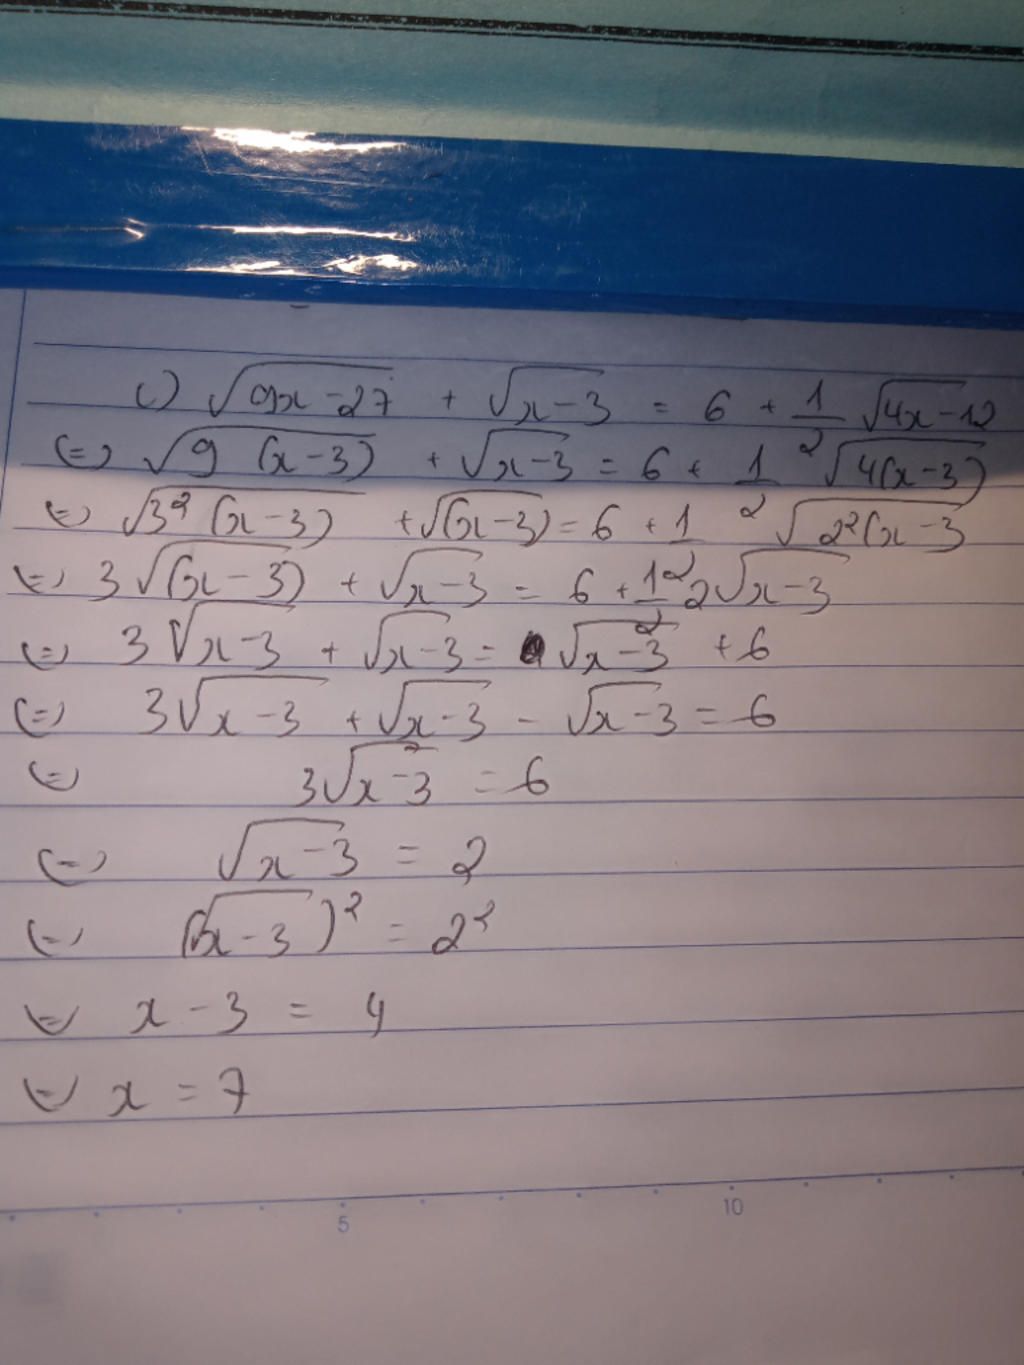 c) √(9x-27) + √(x-3) = 6 + 1/2 √(4x-12)
(=) √(9 (x-3)) + √(x-3) = 6 + 1/2 √(4(x-3))
(=) √(3² (x-3)) + √((x-3)) = 6 + 1/2 √(2²(x-3))
(=) 3√((x-3)) + √(x-3) = 6 + 1/2 2√(x-3)
(=) 3√(x-3) + √(x-3) = √(x-3) + 6
(=) 3√(x-3) + √(x-3) - √(x-3) = 6
(=) 3√(x-3) = 6
(=) √(x-3) = 2
(=) (√(x-3))² = 2²
(=) x-3 = 4
(=) x = 7
5 10